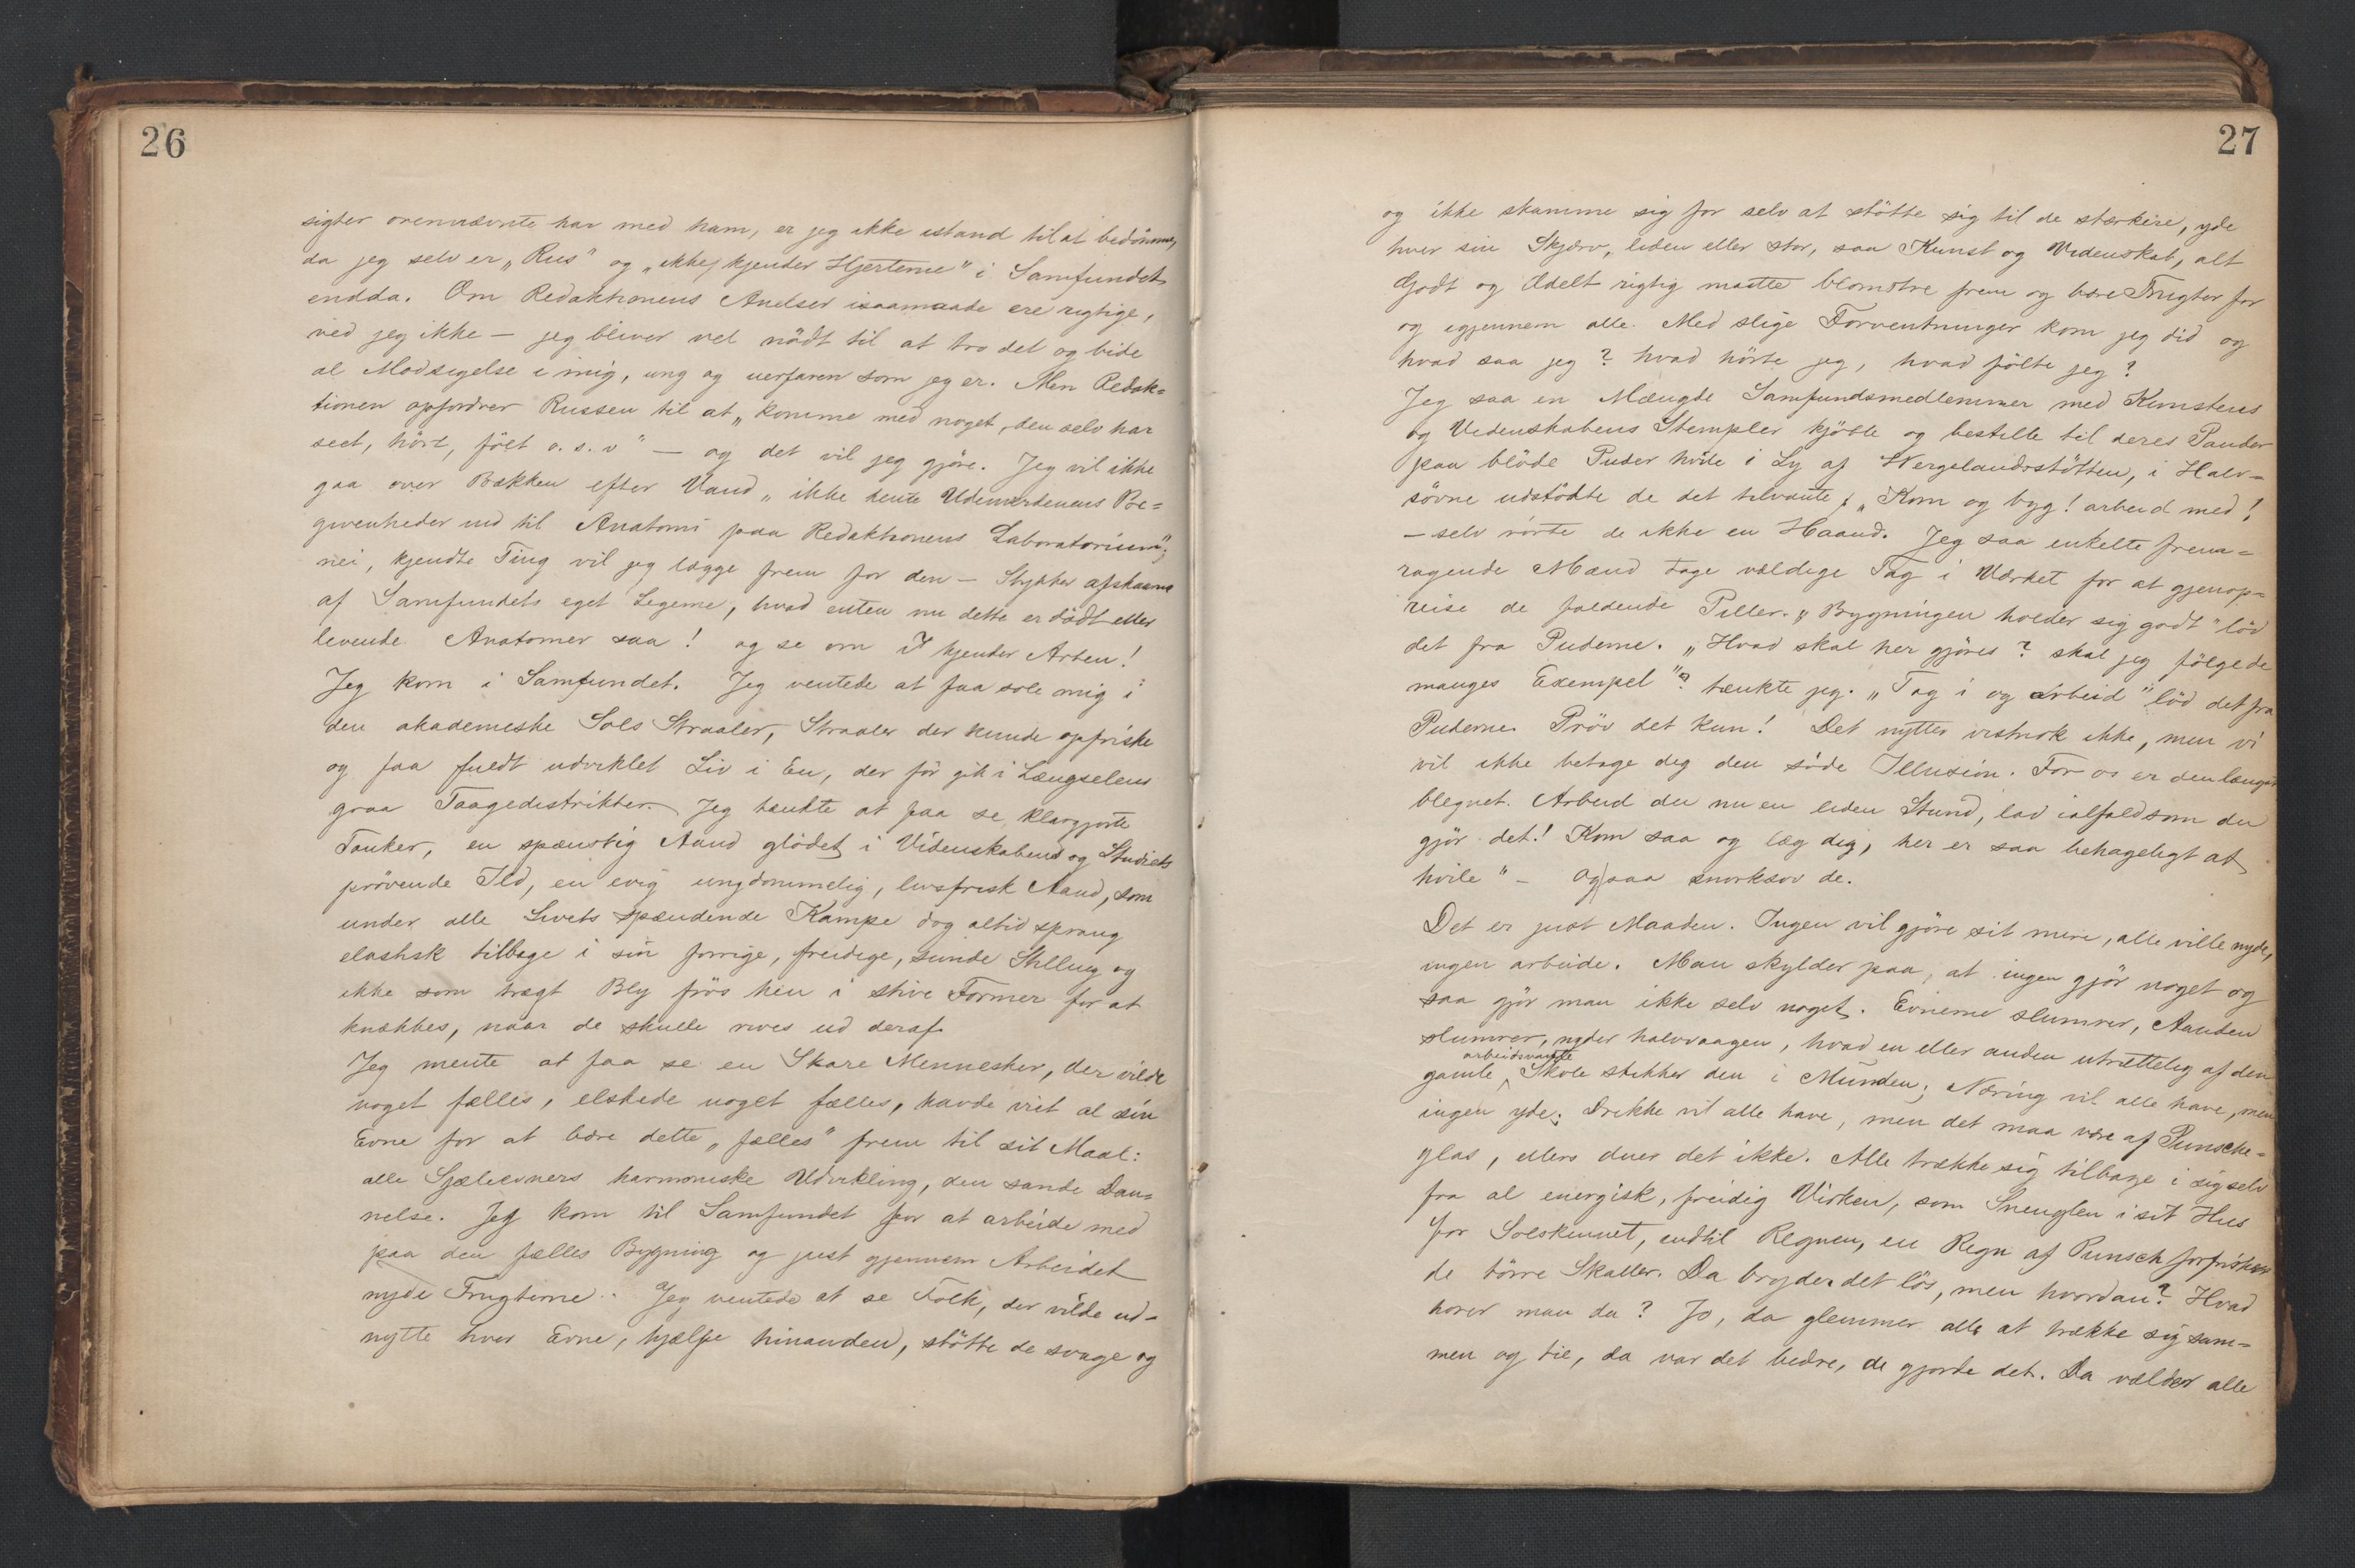 26
sigter ovennævnte har med ham, er jeg ikke istand til at bedömme,
da jeg selv er „Rus" og „ikke kjender Hjerterne" i Samfundet
endda. Om Redaktionens Anelser isaamaade ere rigtige,
ved jeg ikke — jeg bliver vel nödt til at tro det og bide
al Modsigelse i mig, ung og uerfaren som jeg er. Men Redak=
tionen opfordrer Russen til at „komme med noget, den selv har
seet, hört, fölt o. s. v" — og det vil jeg gjöre. Jeg vil ikke
gaa over Bækken efter Vand „ikke hente Udenverdenens Be=
givenheder ind til Anatomi paa Redaktionens Laboratorium";
nei, kjendte Ting vil jeg lægge frem for den — Stykker afskaarne
af Samfundets eget Legeme, hvad enten nu dette er dödt eller
levende. Anatomer saa! og se om I kjender Arten!
Jeg kom i Samfundet. Jeg ventede at faa sole mig i
den akademiske Sols Straaler, Straaler der kunde opfriske
og faa fuldt udviklet Liv i En, der för gik i Længselens
graa Taagedistrikter. Jeg tænkte at faa se klargjorte
Tanker, en spænstig Aand glödet i Videnskabens og Studiets
prövende Ild, en evig ungdommelig, livsfrisk Aand, som
under alle Livets spændende Kampe dog altid sprang
elastisk tilbage i sin forrige, freidige, sunde Stilling og
ikke som trægt Bly frös hen i stive Former for at
knækkes, naar de skulle rives ud deraf.
Jeg mente at faa se en Skare Mennesker, der vilde
noget fælles, elskede noget fælles, havde viet al sin
Evne for at bære dette „fælles" frem til sit Maal:
alle Sjæleevners harmoniske Udvikling, den sande Dan=
nelse. Jeg kom til Samfundet for at arbeide med
paa den fælles Bygning og just gjennem Arbeidet
nyde Frugterne. Jeg ventede at se Folk, der vilde ud-
nytte hver Evne, hjælpe hinanden, stötte de svage og
27
og ikke skamme sig for selv at stötte sig til de stærkere, yde
hver sin Skjærv, liden eller stor, saa Kunst og Videnskab, alt
Godt og Ædelt rigtig maatte blomstre frem og bære Frugter for
og igjennem alle. Med slige Forventninger kom jeg did og
hvad saa jeg? hvad hörte jeg, hvad fölte jeg?
Jeg saa en Mængde Samfundsmedlemmer med Kunstens
og Videnskabens Stempler kjöbte og bestilte til deres Pander
paa blöde Puder hvile i Ly af Wergelandsstötten, i Halv-
sövne udstödte de det tilvante, „Kom og byg! arbeid med!
— selv rörte de ikke en Haand. Jeg saa enkelte frem=
ragende Mænd tage vældige Tag i Værket for at gjenop=
reise de faldende Piller. „Bygningen holder sig godt" löd
det fra Puderne. „Hvad skal her gjöres? skal jeg fölge de
manges Exempel"? tænkte jeg. „Tag i og arbeid" löd det fra
Puderne. Pröv det kun! Det nytter vistnok ikke, men vi
vil ikke betage dig den söde Illusion. For os er den længst
blegnet. Arbeid du nu en liden Stund, lad ialfald som du
gjör det! Kom saa og læg dig, her er saa behageligt at
hvile" — og saa snorksov de.
Det er just Maaden. Ingen vil gjöre sit mere, alle ville nyde,
ingen arbeide. Man skylder paa, at ingen gjör noget og
saa gjör man ikke selv noget. Evnerne slumrer, Aanden
slumrer, nyder halvvaagen, hvad en eller anden utrættelig af den
arbeidsvante
gamle Skole stikker den i Munden; Næring vil alle have, men
ingen yde. Drikke vil alle have, men det maa være af Punsche=
glas, ellers duer det ikke. Alle trække sig tilbage i sig selv
fra al energisk, freidig Virken, som Sneglen i sit Hus
for Solskinnet, indtil Regnen, en Regn af Punsch forfrisker
de törre Skaller. Da bryder det lös, men hvordan? Hvad
hörer man da? Jo, da glemmer alle at trække sig sam=
men og tie, da var det bedre, de gjorde det. Da vælder alle